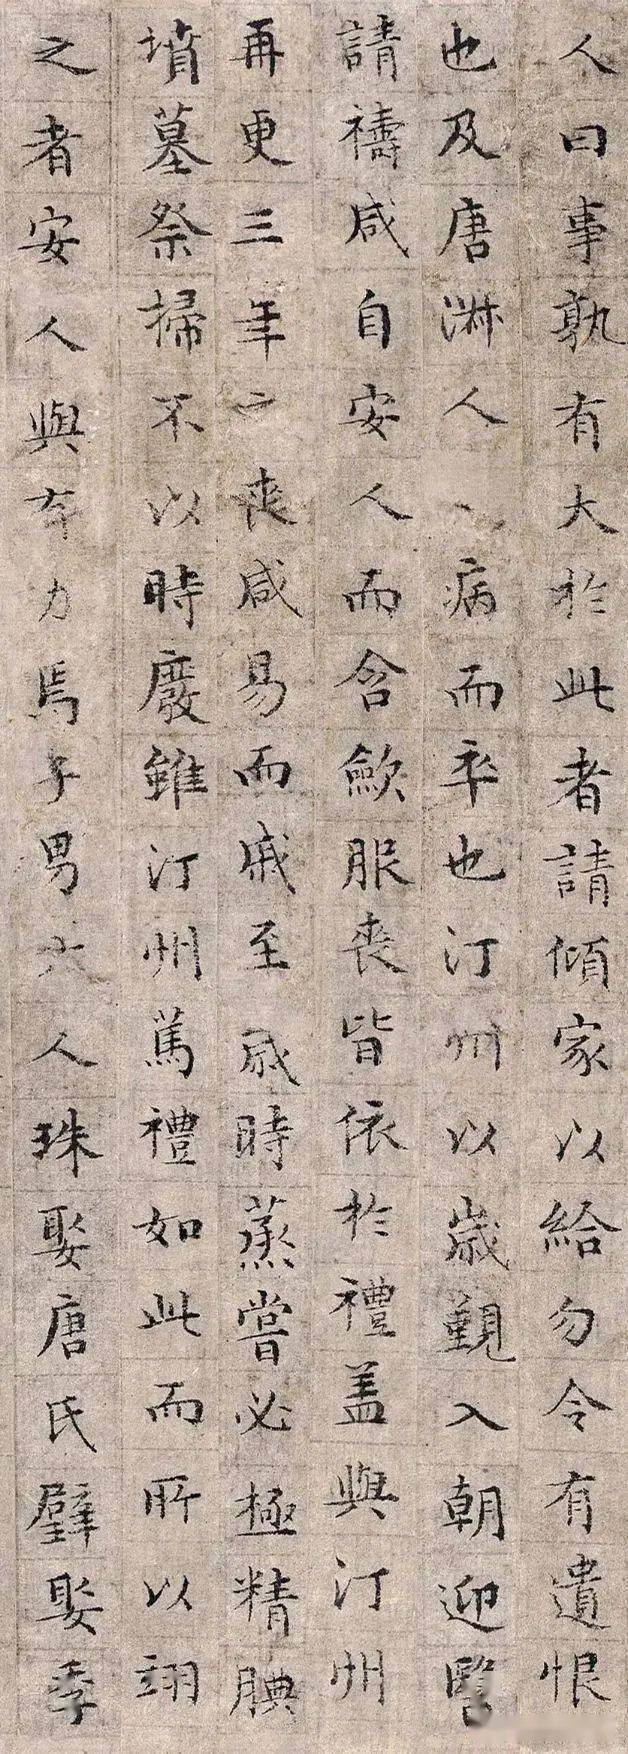 人曰事孰有大於此者請傾家以給勿令有遺恨
也及唐淋人病而卒也汀州以歲覲入朝迎醫
請禱咸自安人而含歛服喪皆依於禮盖與汀州
再更三年二喪咸易而戚至歲時蒸嘗必極精腆
墳墓祭掃不以時廢雖汀州篤禮如此而所以翊
之者安人與有力焉子男六人珠娶唐氏璧娶季